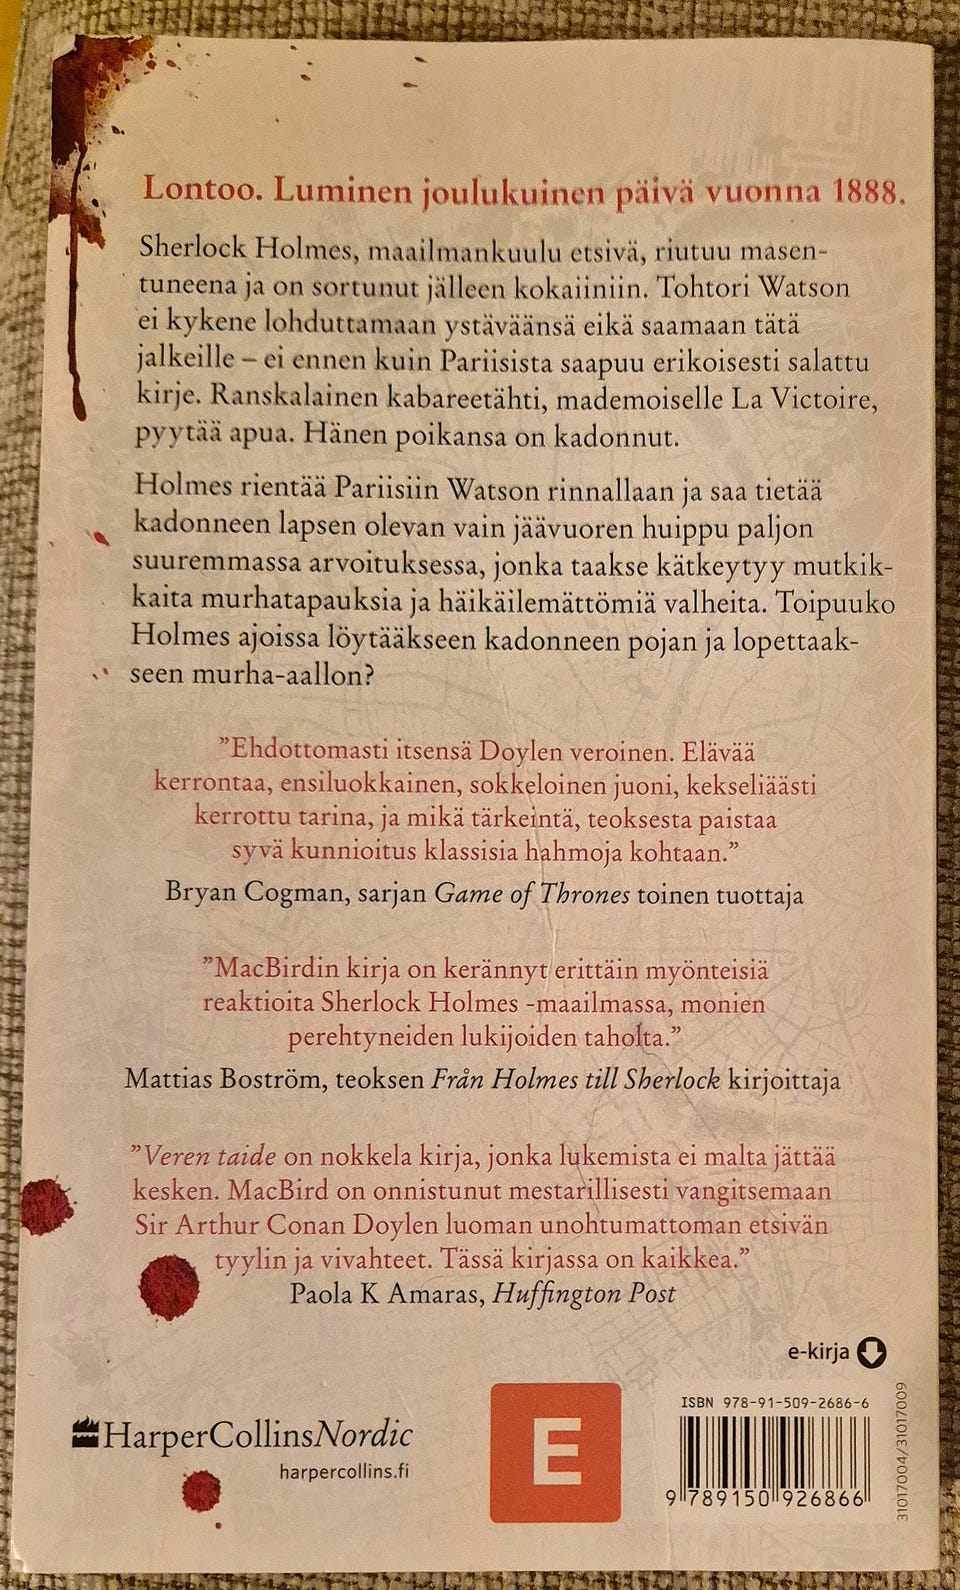 Lontoo. Luminen joulukuinen päivä vuonna 1888.
Sherlock Holmes, maailmankuulu etsivä, riutuu masen-
tuneena ja on sortunut jälleen kokaiiniin. Tohtori Watson
ei kykene lohduttamaan ystäväänsä eikä saamaan tätä
jalkeille – ei ennen kuin Pariisista saapuu erikoisesti salattu
kirje. Ranskalainen kabareetähti, mademoiselle La Victoire,
pyytää apua. Hänen poikansa on kadonnut.
Holmes rientää Pariisiin Watson rinnallaan ja saa tietää
kadonneen lapsen olevan vain jäävuoren huippu paljon
suuremmassa arvoituksessa, jonka taakse kätkeytyy mutkik-
kaita murhatapauksia ja häikäilemättömiä valheita. Toipuuko
Holmes ajoissa löytääkseen kadonneen pojan ja lopettaak-
seen murha-aallon?
”Ehdottomasti itsensä Doylen veroinen. Elävää
kerrontaa, ensiluokkainen, sokkeloinen juoni, kekseliäästi
kerrottu tarina, ja mikä tärkeintä, teoksesta paistaa
syvä kunnioitus klassisia hahmoja kohtaan.”
Bryan Cogman, sarjan Game of Thrones toinen tuottaja
”MacBirdin kirja on kerännyt erittäin myönteisiä
reaktioita Sherlock Holmes -maailmassa, monien
perehtyneiden lukijoiden taholta.”
Mattias Boström, teoksen Från Holmes till Sherlock kirjoittaja
”Veren taide on nokkela kirja, jonka lukemista ei malta jättää
kesken. MacBird on onnistunut mestarillisesti vangitsemaan
Sir Arthur Conan Doylen luoman unohtumattoman etsivän
tyylin ja vivahteet. Tässä kirjassa on kaikkea.”
Paola K Amaras, Huffington Post
e-kirja
HarperCollinsNordic
harpercollins.fi
E
ISBN 978-91-509-2686-6
9 789150 926866
31017004/31017009